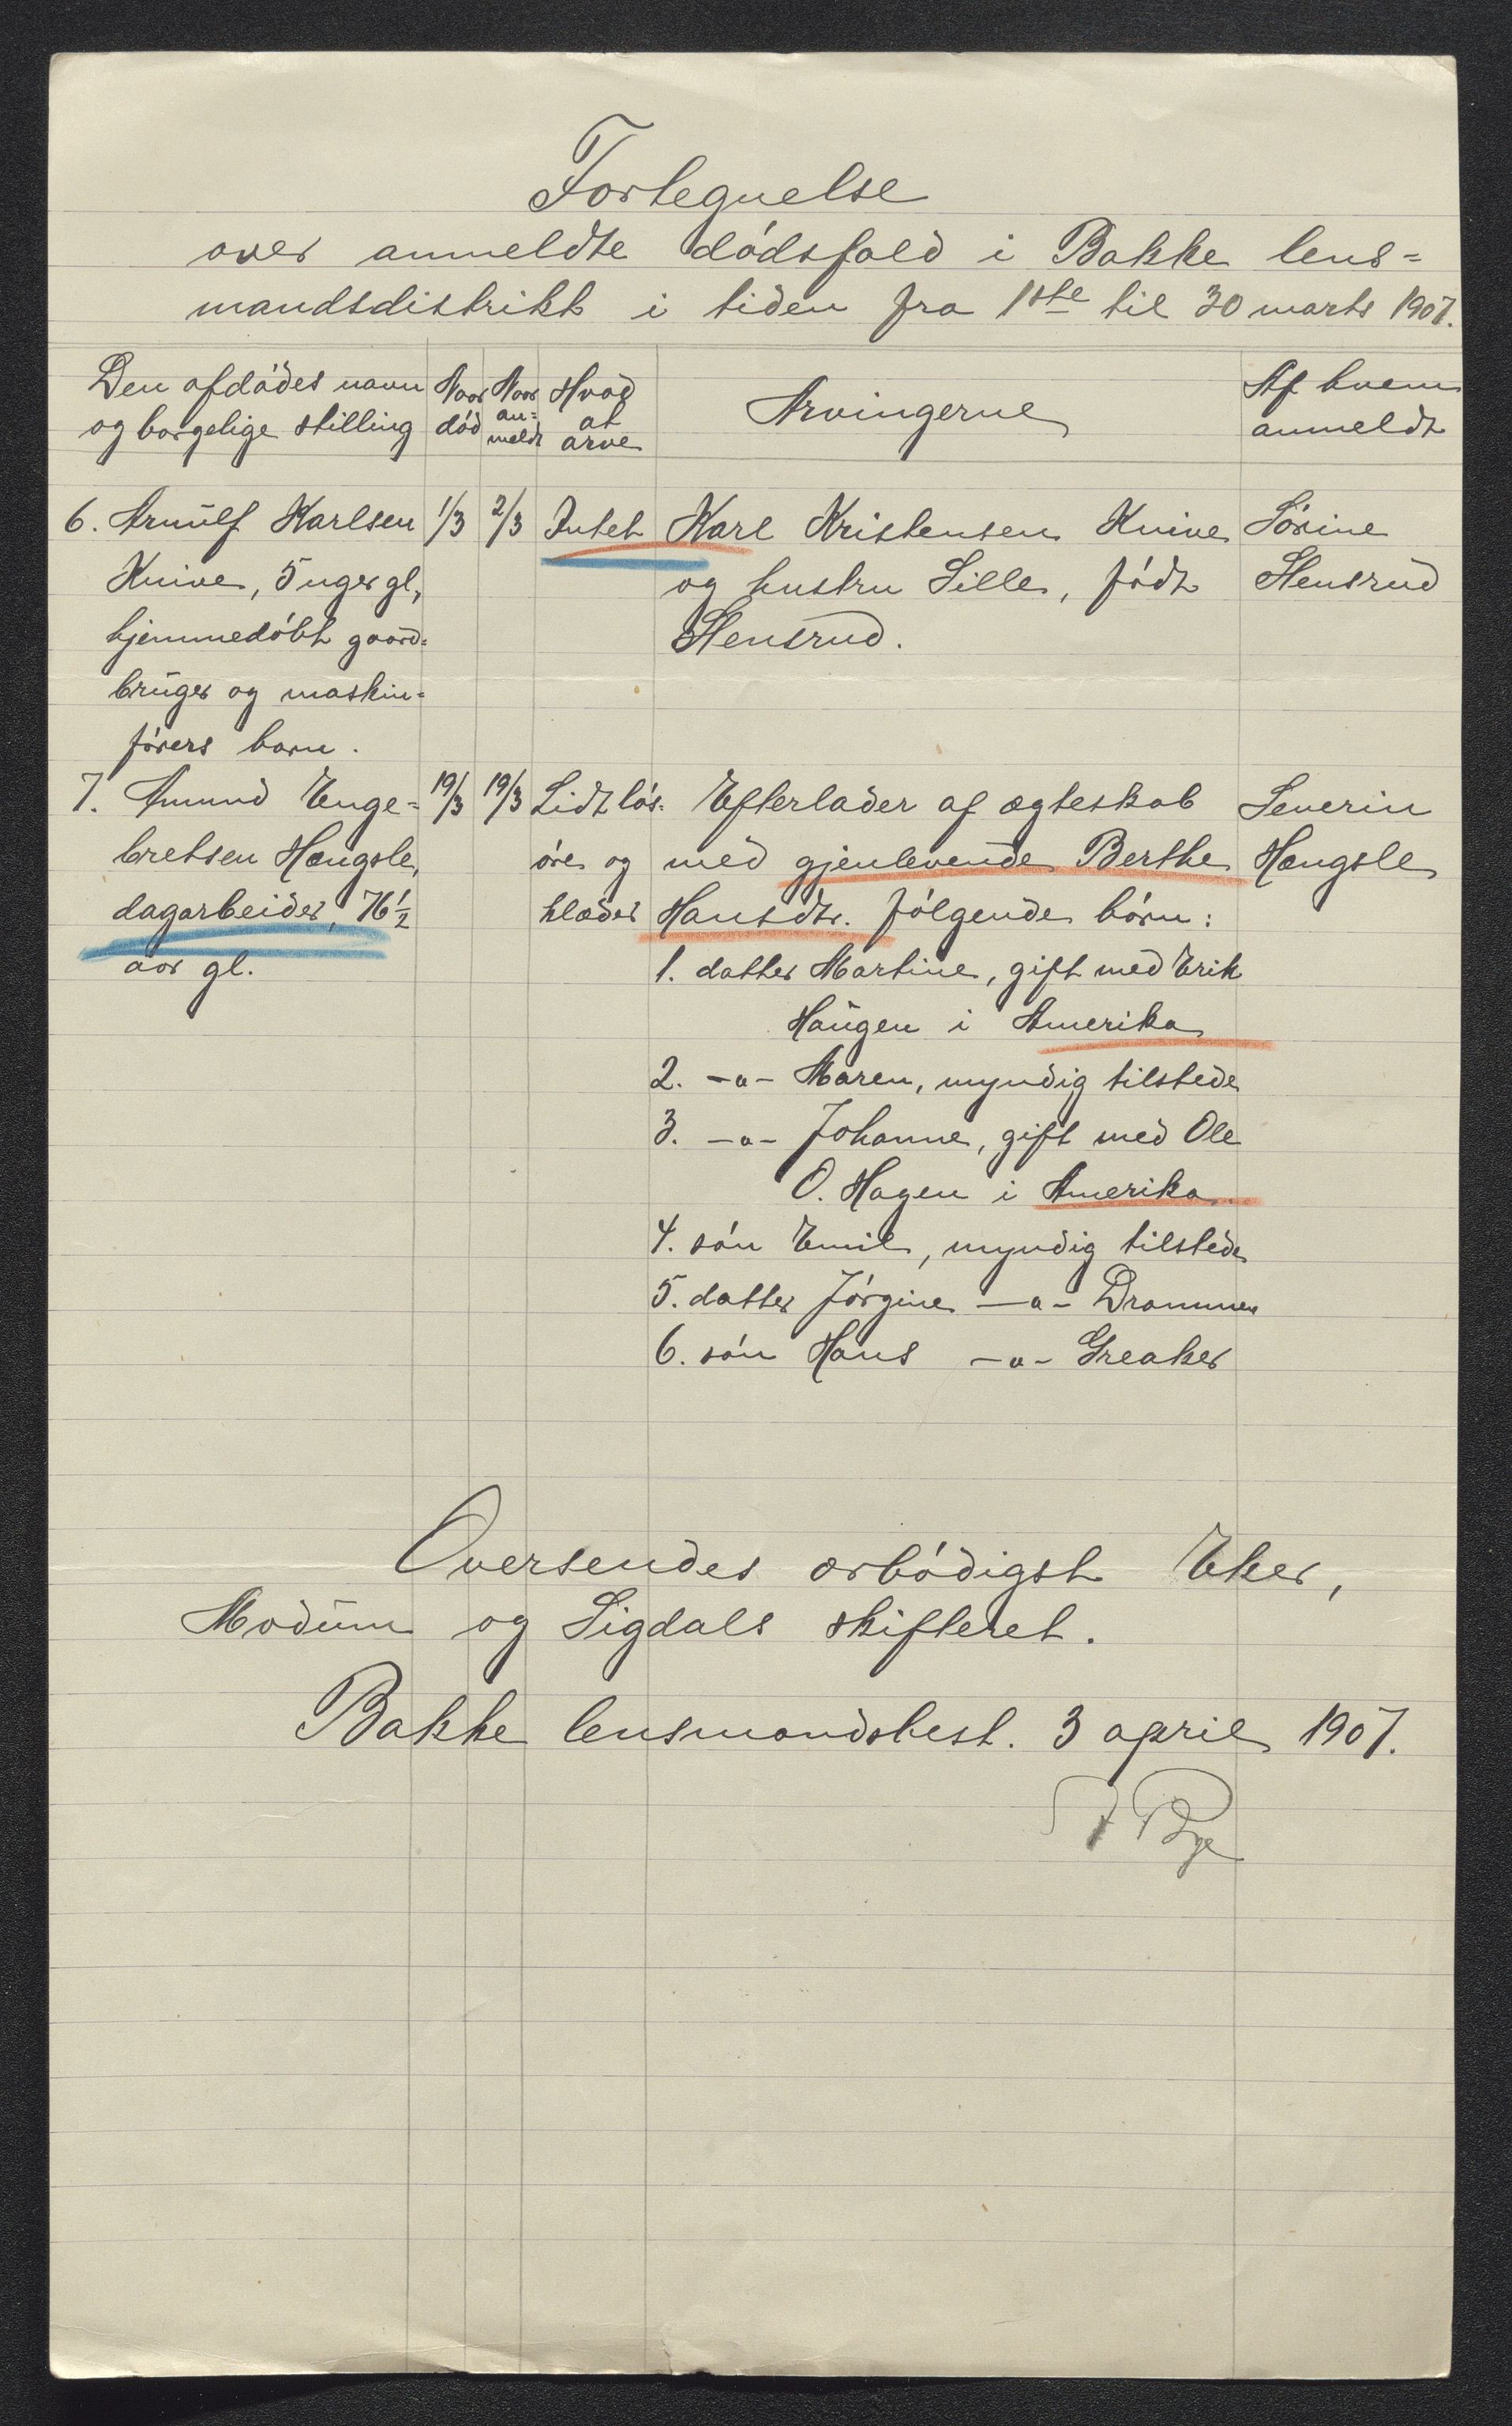 Fortegnelse
over anmeldte dödsfald i Bakke lens=
mandsdistrikt i tiden fra 1ste til 30 marts 1907.
Den afdödes navn
og borgelige stilling
Naar
död
Naar
an=
meldt
Hvad
at
arve
Arvingerne
Af hvem
anmeldt
6. Arnulf Karlsen 1/3 2/3 Intet Karl Kristensen Knive Sörine
Knive, 5 uger gl, og hustru Sille, födt Stensrud
hjemmedöbt gaard= Stensrud.
bruger og maskin=
förers barn.
7. Amund Enge= 19/3 19/3 Lidt lös= Efterlader af ægteskab Severin
bretsen Hængsle, öre og med gjenlevende Berthe Hængsle
dagarbeider, 76 1/2 klæder Hansdtr. fölgende börn:
aar gl. 1. datter Martine, gift med Erik
Haugen i Amerika
2. -"- Maren, myndig tilstede
3. -"- Johanne, gift med Ole
O. Hagen i Amerika.
4. sön Emil, myndig tilstede
5. datter Jörgine -"- Drammen
6. sön Hans -"- Greaker
Oversendes ærbödigst Eker,
Modum og Sigdals skifteret.
Bakke lensmandsbest. 3 april 1907.